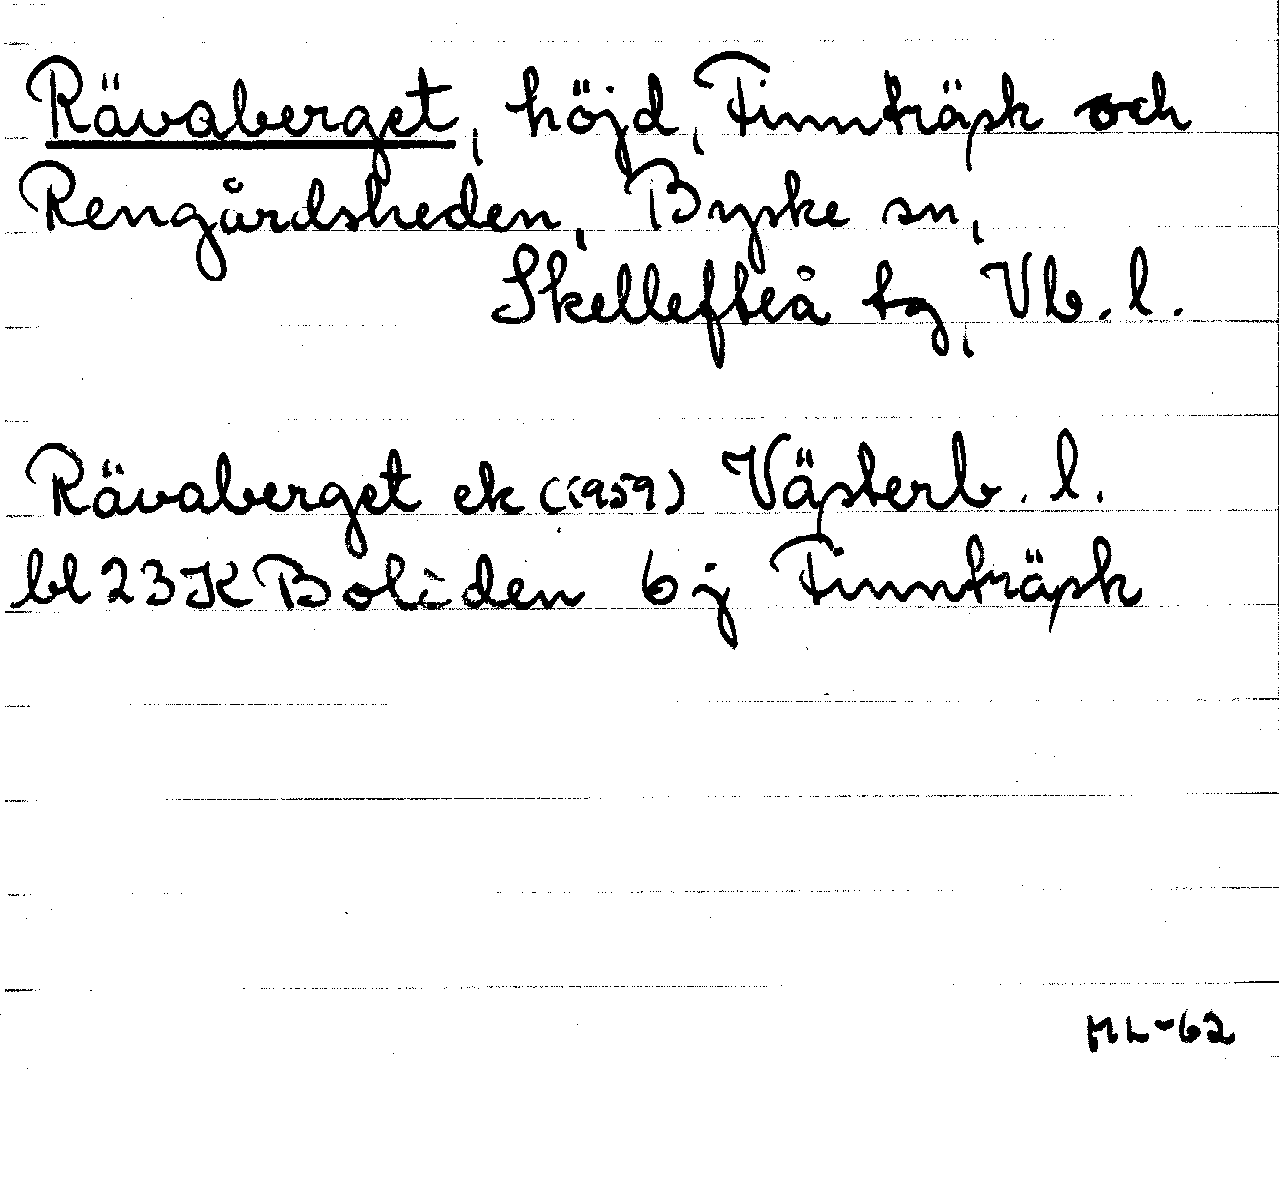 Rävaberget, höjd, Finnträsk och
Rengårdsheden, Byske sn,
Skellefteå tg, Vb. l.
Rävaberget ek (1959) Västerb. l.
bl 23K Boliden 6 j Finnträsk
ML-62